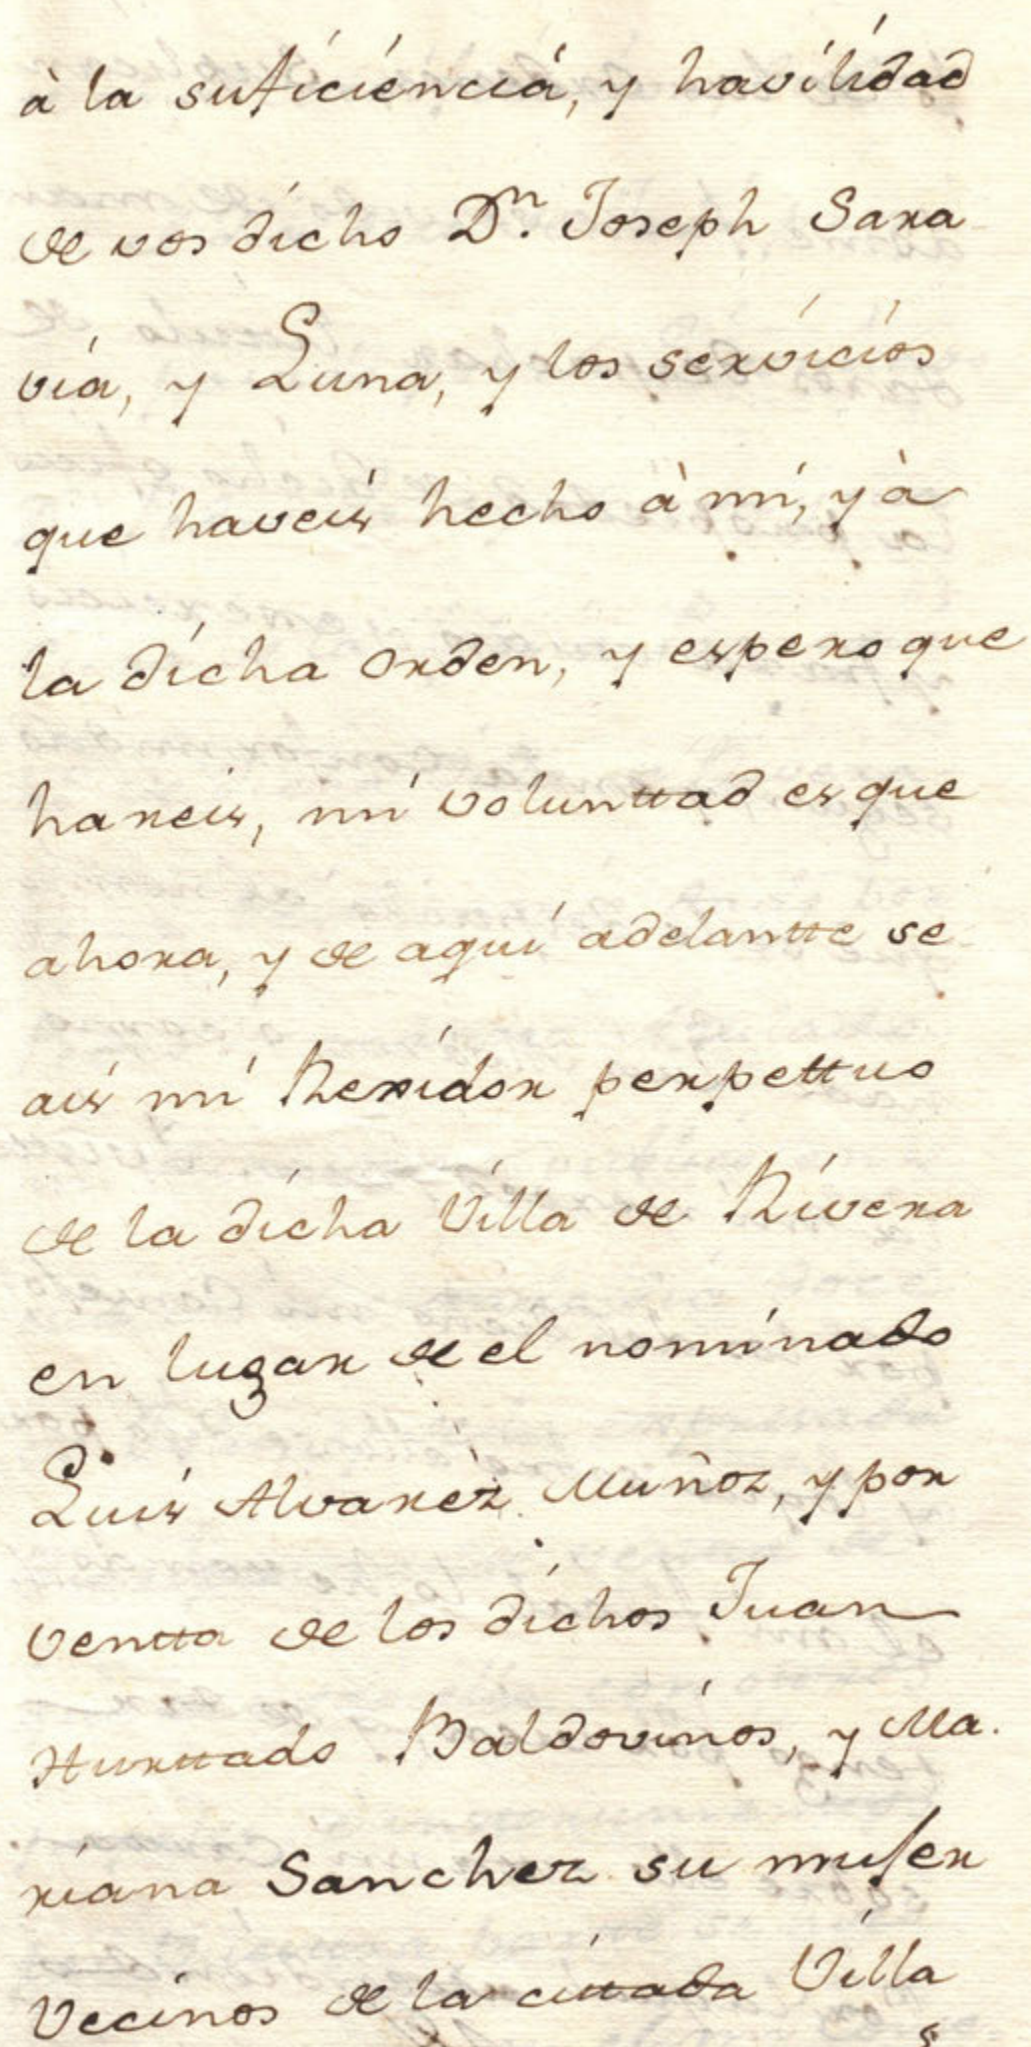 à la suficiencia, y havilidad
de vos dicho Dn. Joseph Sara
via, y Luna, y los servicios
que haveis hecho à mi, y à
la dicha orden, y espero que
hareis, mi volunttad es que
ahora, y de aqui adelantte se
ais mi Rexidor perpettuo
de la dicha Villa de Rivera
en lugar de el nominado
Luis Alvarez Muñoz, y por
ventta de los dichos Juan
Hurttado Baldovinos, y Ma.
riana Sanchez su mujer
Vecinos de la cittada Villa